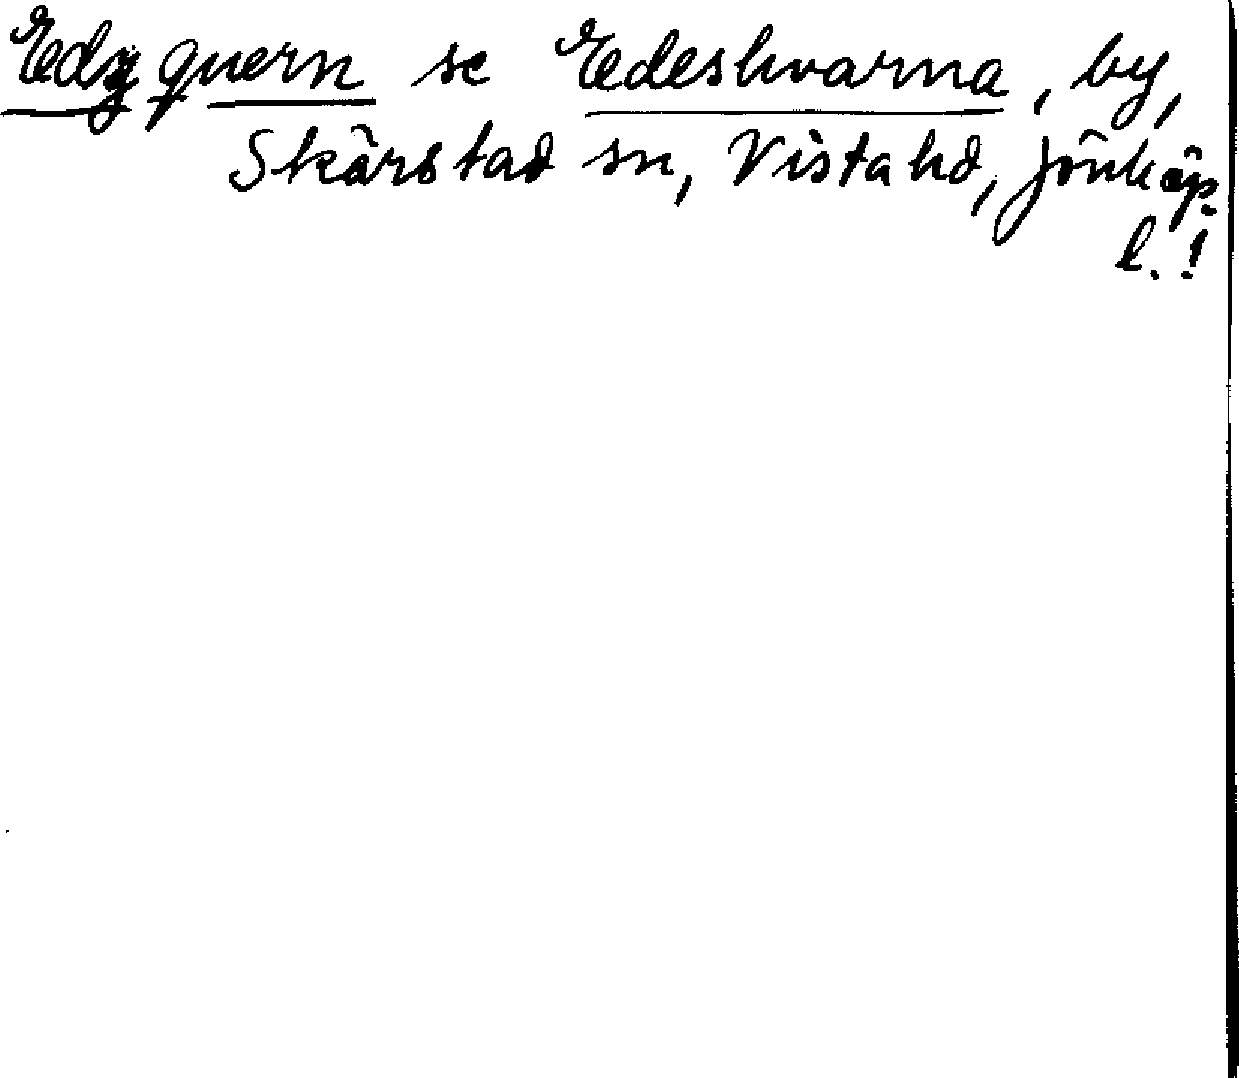 Edzquern se Edeskvarna, by,
Skärstad sn, Vista hd, Jönköp.
l.!